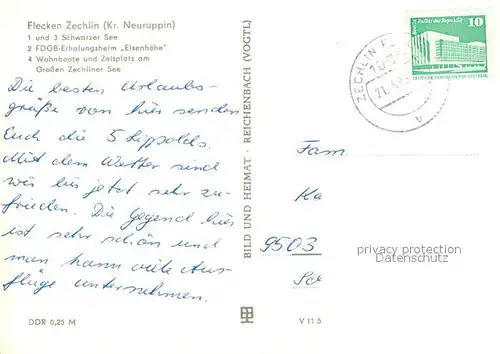 Flecken Zechlin (Kr. Neuruppin)
1 und 3 Schwarzer See
2 FDGB-Erholungsheim „Elsenhöhe"
4 Wohnboote und Zeltplatz am
Großen Zechliner See
Die besten Urlaubs-
grüße von hier senden
Euch die 5 Lippolds.
Mit dem Wetter sind
wir bis jetzt sehr zu-
frieden. Die Gegend hier
ist sehr schön und
man kann viele Aus-
flüge unternehmen.
DDR 0,25 M
BILD UND HEIMAT · REICHENBACH (VOGTL)
V 11 5
ZECHLIN
21.
b
10
Fam.
Ka
9503
privacy protection
Datenschutz